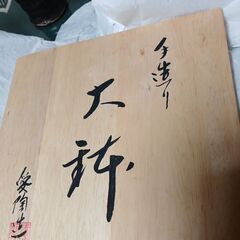 手造り
大鉢
愛陶造